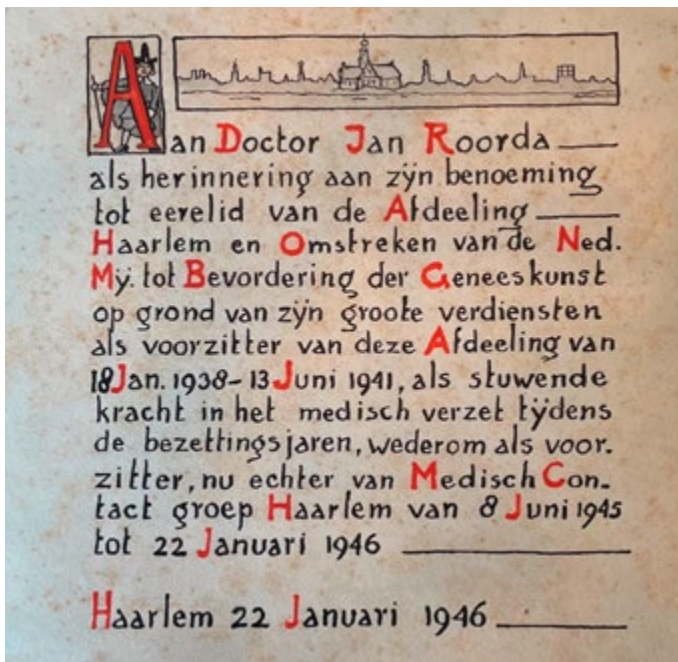 Aan Doctor Jan Roorda
als herinnering aan zijn benoeming
tot eerelid van de Afdeeling
Haarlem en Omstreken van de Ned.
Mij. tot Bevordering der Geneeskunst
op grond van zijn groote verdiensten
als voorzitter van deze Afdeeling van
18 Jan. 1938 - 13 Juni 1941, als stuwende
kracht in het medisch verzet tijdens
de bezettingsjaren, wederom als voor-
zitter, nu echter van Medisch Con-
tact groep Haarlem van 8 Juni 1945
tot 22 Januari 1946
Haarlem 22 Januari 1946